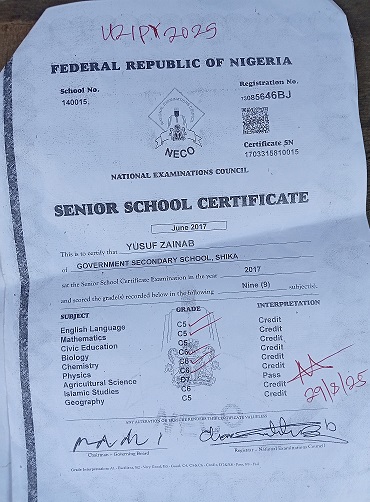 2025
FEDERAL REPUBLIC OF NIGERIA
School No.
140015.
Registration No.
085646BJ
Certificate SN
1703315810015
NECO
NATIONAL EXAMINATIONS COUNCIL
SENIOR SCHOOL CERTIFICATE
June 2017
This is to certify that YUSUF ZAINAB
of GOVERNMENT SECONDARY SCHOOL, SHIKA
sat the Senior School Certificate Examination in the year 2017
and scored the grade(s) recorded below in the following Nine (9) subject(s).
SUBJECT GRADE INTERPRETATION
English Language C5 Credit
Mathematics C5 Credit
Civic Education C5 Credit
Biology Credit
Chemistry Credit
Physics C6 Pass
Agricultural Science D7 Credit
Islamic Studies C6 Credit
Geography C5 Credit
29/8/25
Chairman - Governing Board
Registrar - National Examinations Council